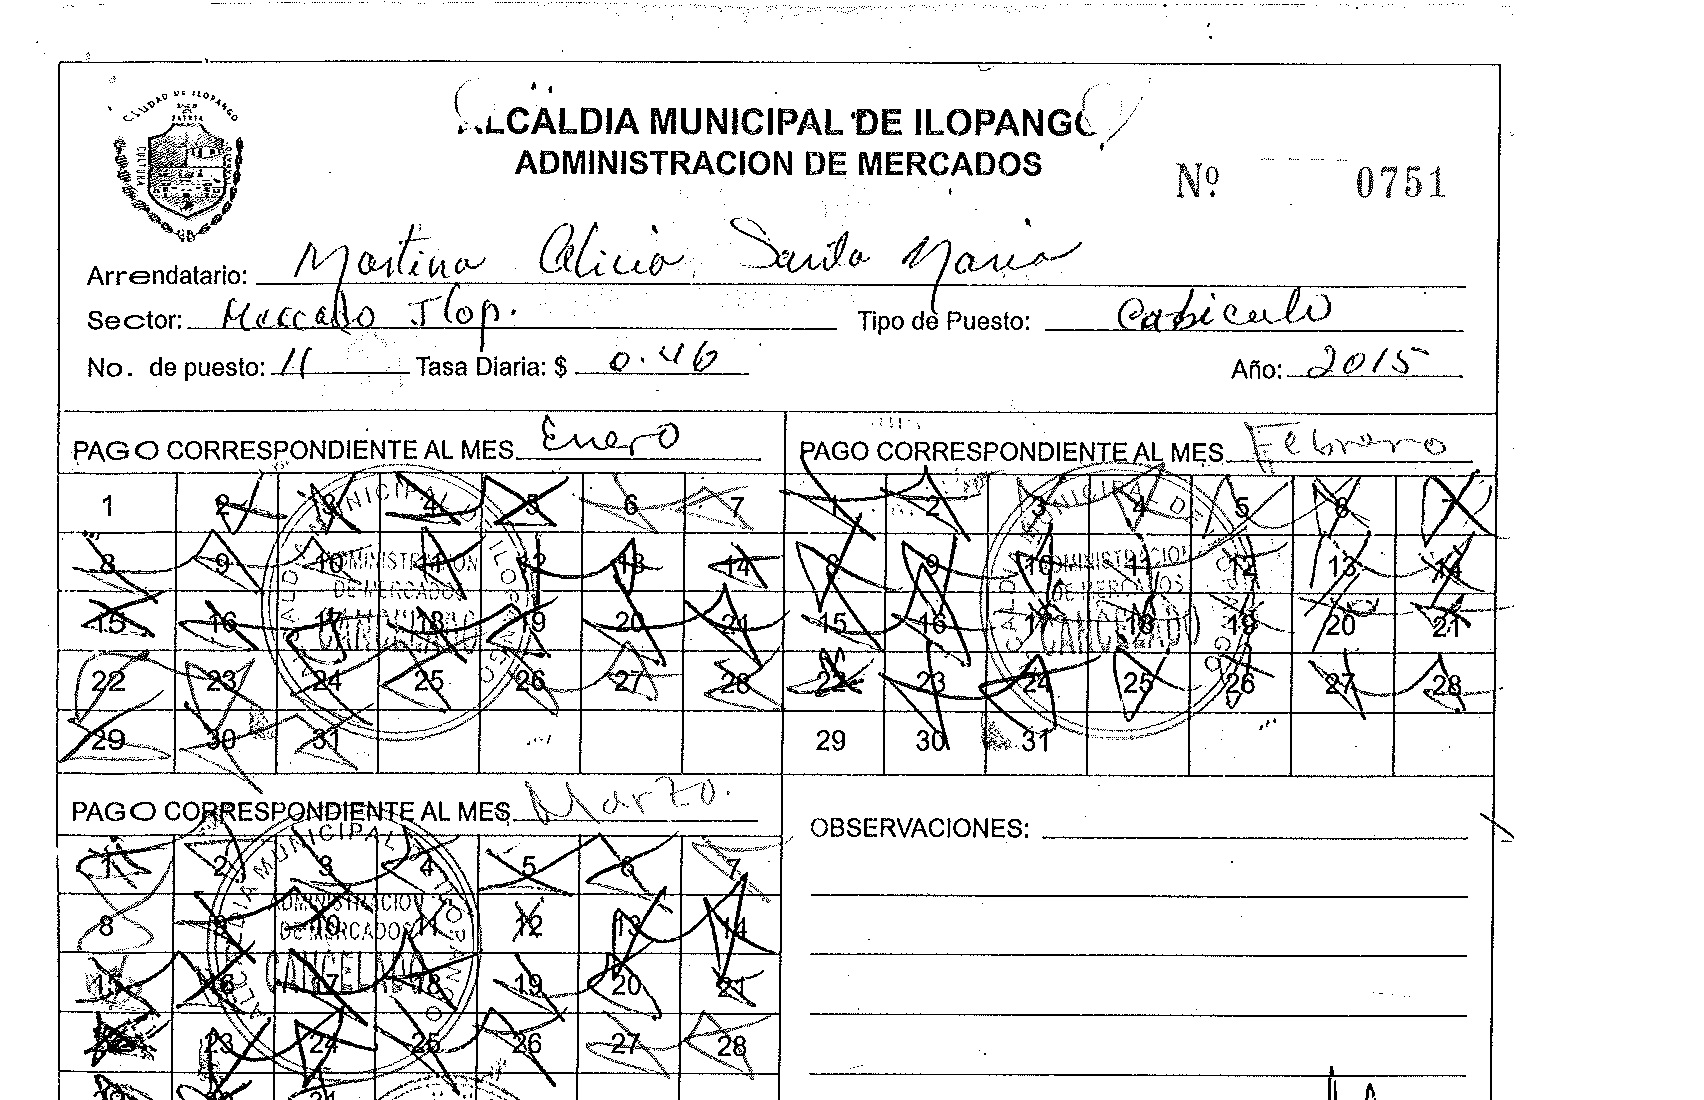 CIUDAD DE ILOPANGO
ALCALDIA MUNICIPAL DE ILOPANGO
ADMINISTRACION DE MERCADOS
Nº 0751
Arrendatario: Martina Alicia Santa Maria
Sector: Mercado Ilop. Tipo de Puesto: Cubiculo
No. de puesto: 11 Tasa Diaria: $ 0.46 Año: 2015
PAGO CORRESPONDIENTE AL MES Enero
1 2 3 4 5 6 7
8 9 10 11 12 13 14
15 16 17 18 19 20 21
22 23 24 25 26 27 28
29 30 31
ALCALDIA MUNICIPAL DE ILOPANGO
ADMINISTRACION
DE MERCADOS
CANCELADO
PAGO CORRESPONDIENTE AL MES Febrero
1 2 3 4 5 6 7
8 9 10 11 12 13 14
15 16 17 18 19 20 21
22 23 24 25 26 27 28
29 30 31
ALCALDIA MUNICIPAL DE ILOPANGO
ADMINISTRACION
DE MERCADOS
CANCELADO
PAGO CORRESPONDIENTE AL MES Marzo.
1 2 3 4 5 6 7
8 9 10 11 12 13 14
15 16 17 18 19 20 21
22 23 24 25 26 27 28
29 30 31
ALCALDIA MUNICIPAL DE ILOPANGO
ADMINISTRACION
DE MERCADOS
CANCELADO
OBSERVACIONES: